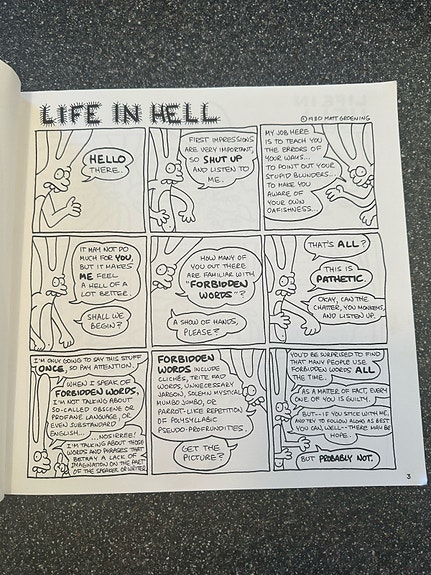 LIFE IN HELL
©1980 MATT GROENING
HELLO
THERE.
FIRST IMPRESSIONS
ARE VERY IMPORTANT,
SO SHUT UP
AND LISTEN TO
ME.
MY JOB HERE
IS TO TEACH YOU
THE ERRORS OF
YOUR WAYS...
TO POINT OUT YOUR
STUPID BLUNDERS...
TO MAKE YOU
AWARE OF
YOUR OWN
OAFISHNESS...
IT MAY NOT DO
MUCH FOR YOU,
BUT IT MAKES
ME FEEL
A HELL OF A
LOT BETTER.
SHALL WE
BEGIN?
HOW MANY OF
YOU OUT THERE
ARE FAMILIAR WITH
"FORBIDDEN
WORDS"?
A SHOW OF HANDS,
PLEASE?
THAT'S ALL?
THIS IS
PATHETIC.
OKAY, CAN THE
CHATTER, YOU MONGRELS,
AND LISTEN UP.
I'M ONLY GOING TO SAY THIS STUFF
ONCE, SO PAY ATTENTION.
WHEN I SPEAK OF
FORBIDDEN WORDS,
I'M NOT TALKING ABOUT
SO-CALLED OBSCENE OR
PROFANE LANGUAGE, OR
EVEN SUBSTANDARD
ENGLISH...
...NOSIREE!
I'M TALKING ABOUT THOSE
WORDS AND PHRASES THAT
BETRAY A LACK OF
IMAGINATION ON THE PART
OF THE SPEAKER OR WRITER.
FORBIDDEN
WORDS INCLUDE
CLICHÉS, TRITE FAD
WORDS, UNNECESSARY
JARGON, SOLEMN MYSTICAL
MUMBO JUMBO, OR
PARROT-LIKE REPETITION
OF POLYSYLLABIC
PSEUDO-PROFUNDITIES.
GET THE
PICTURE?
YOU'D BE SURPRISED TO FIND
THAT MANY PEOPLE USE
FORBIDDEN WORDS ALL
THE TIME.
AS A MATTER OF FACT, EVERY
ONE OF YOU IS GUILTY.
BUT--IF YOU STICK WITH ME,
AND TRY TO FOLLOW ALONG AS BEST
YOU CAN, WELL--THERE MAY BE
HOPE.
BUT PROBABLY NOT.
3